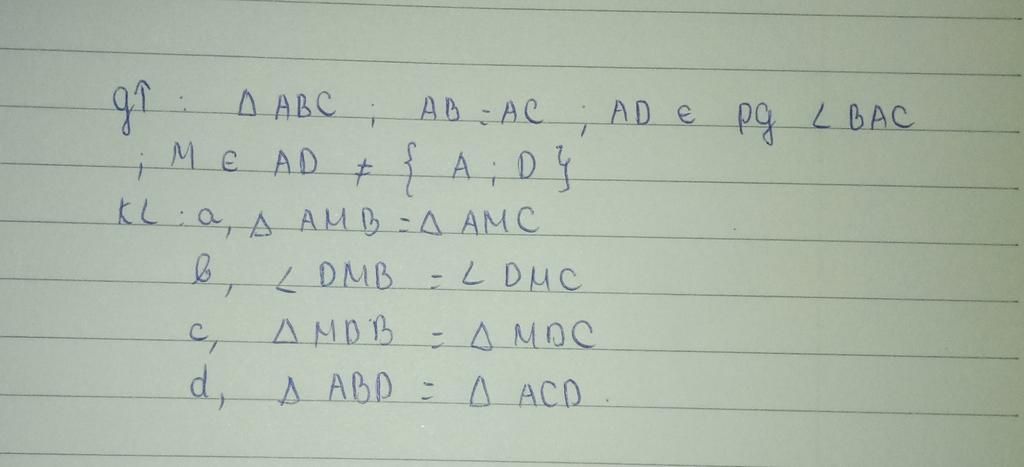 gT : Δ ABC ; AB = AC ; AD ∈ pg ∠ BAC
; M ∈ AD ≠ { A ; D }
KL : a, Δ AMB = Δ AMC
b, ∠ DMB = ∠ DMC
c, Δ MDB = Δ MDC
d, Δ ABD = Δ ACD.